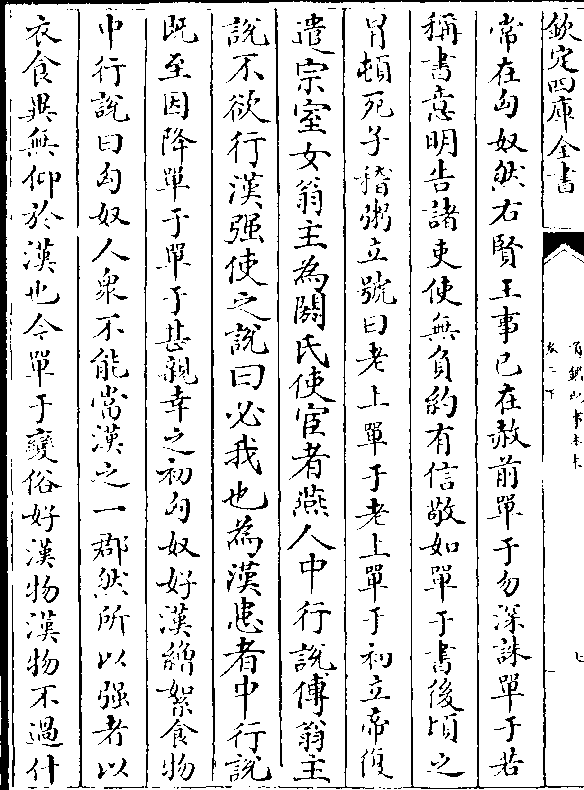 欽定四庫全書
常在匈奴然右賢王事已在赦前單于勿深誅單于若
稱書意明告諸吏使無負約有信敬如單于書後頃之
冒頓死子稽粥立號曰老上單于老上單于初立帝復
遣宗室女翁主為閼氏使宦者燕人中行說傅翁主
說不欲行漢强使之說曰必我也為漢患者中行說
既至因降單于單于甚親幸之初匈奴好漢繒絮食物
中行說曰匈奴人衆不能當漢之一郡然所以强者以
衣食異無仰於漢也今單于變俗好漢物漢物不過什